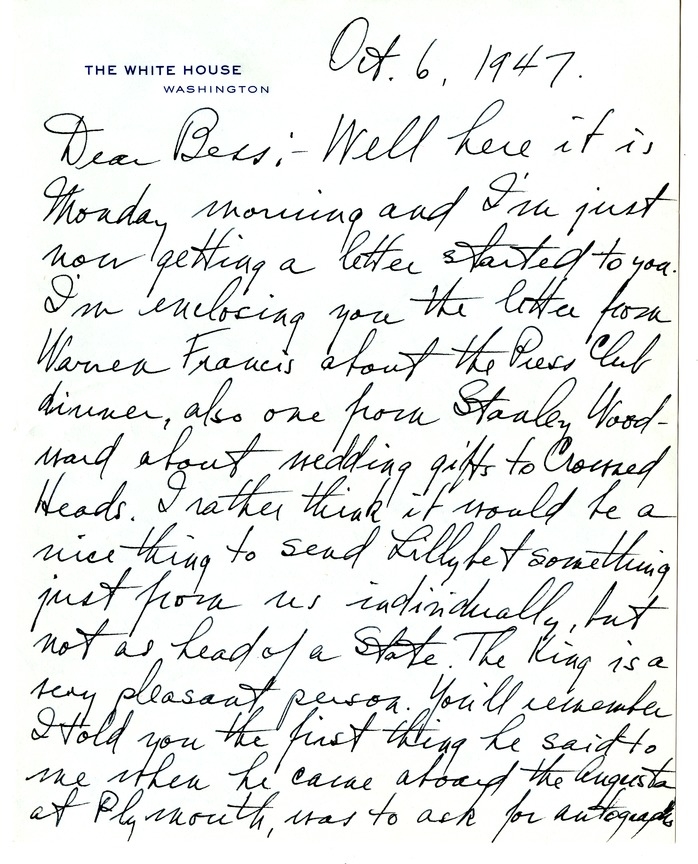 THE WHITE HOUSE
WASHINGTON
Oct. 6, 1947.
Dear Bess:- Well here it is
Monday morning and I'm just
now getting a letter started to you.
I'm enclosing you the letter from
Warren Francis about the Press Club
dinner, also one from Stanley Wood-
ward about wedding gifts to Crowned
Heads. I rather think it would be a
nice thing to send Lillybet something
just from us individually, but
not as head of a State. The King is a
very pleasant person. You'll remember
I told you the first thing he said to
me when he came aboard the Augusta
at Plymouth, was to ask for autographs